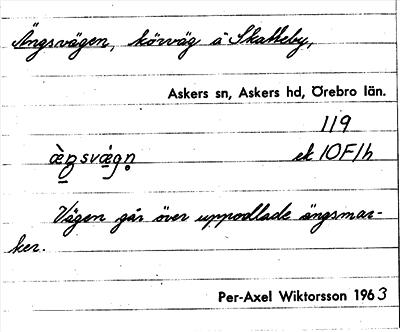 Ängsvägen, körväg å Skatteby,
Askers sn, Askers hd, Örebro län.
119
ä̀ŋsvä̀gn̥ ek 10F/h
Vägen går över uppodlade ängsmar-
ker.
Per-Axel Wiktorsson 1963